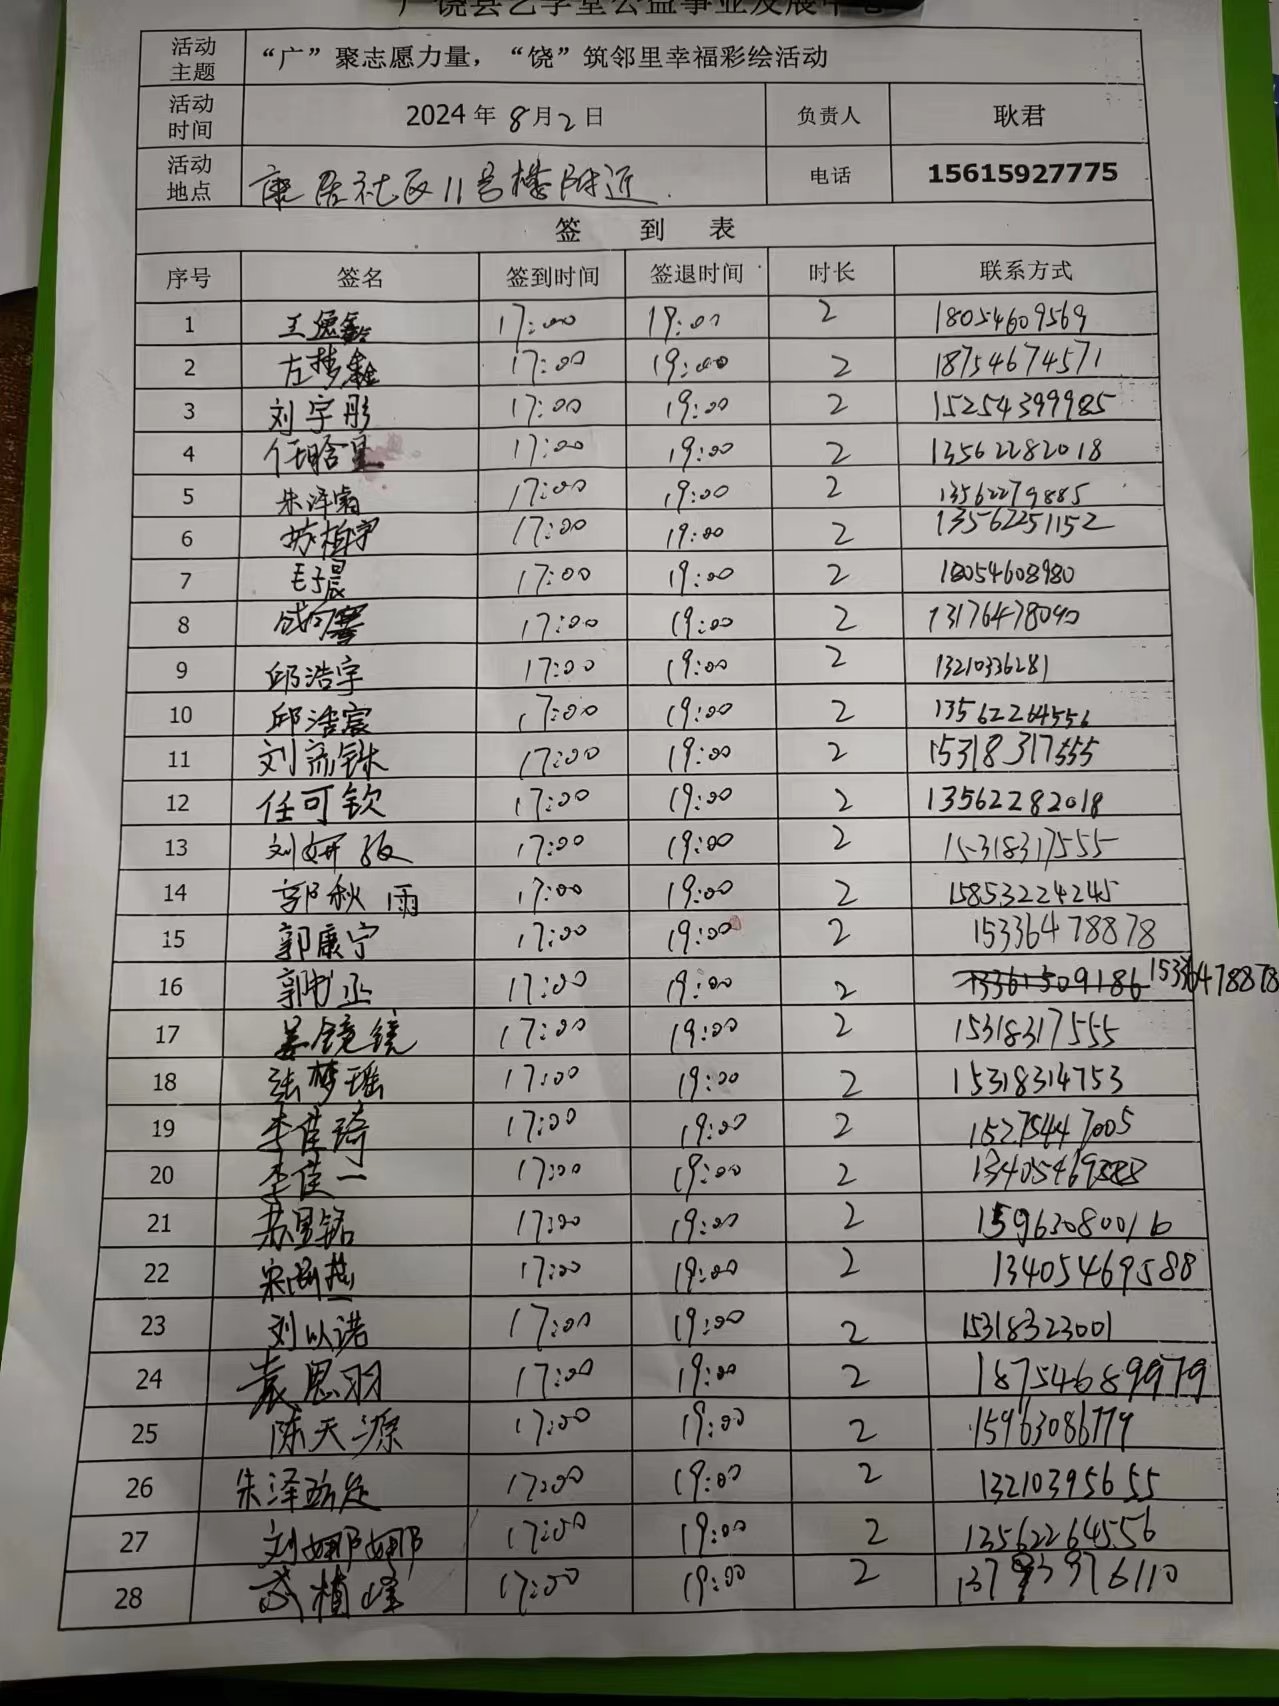 广饶县艺学堂公益事业发展中心
活动主题 “广”聚志愿力量，“饶”筑邻里幸福彩绘活动
活动时间 2024年8月2日 负责人 耿君
活动地点 康居社区11号楼附近 电话 15615927775
签 到 表
序号 签名 签到时间 签退时间 时长 联系方式
1 17:00 19:00 2 18054609569
2 17:00 19:00 2 18754674571
3 刘宇彤 17:00 19:00 2 15254399985
4 17:00 19:00 2 13562282018
5 朱泽宥 17:00 19:00 2 13562279885
6 苏柏宇 17:00 19:00 2 13562251152
7 毛子晨 17:00 19:00 2 18054608980
8 17:00 19:00 2 13176478090
9 邱浩宇 17:00 19:00 2 13210336281
10 邱浩宸 17:00 19:00 2 13562264556
11 17:00 19:00 2 15318317555
12 任可钦 17:00 19:00 2 13562282018
13 17:00 19:00 2 15318317555
14 郭秋雨 17:00 19:00 2 15853224245
15 郭康宁 17:00 19:00 2 15336478878
16 17:00 19:00 2 13361509186 15336478878
17 姜镜镜 17:00 19:00 2 15318317555
18 张梦瑶 17:00 19:00 2 15318314753
19 李佳琦 17:00 19:00 2 15275447005
20 李佳一 17:00 19:00 2
21 17:00 19:00 2 15963080016
22 17:00 19:00 2 13405469588
23 刘以诺 17:00 19:00 2 15318323001
24 袁思羽 17:00 19:00 2 18754689979
25 陈天源 17:00 19:00 2 15963086779
26 17:00 19:00 2 13210395655
27 刘娜娜 17:00 19:00 2 13562264556
28 武植峰 17:00 19:00 2 13793976110